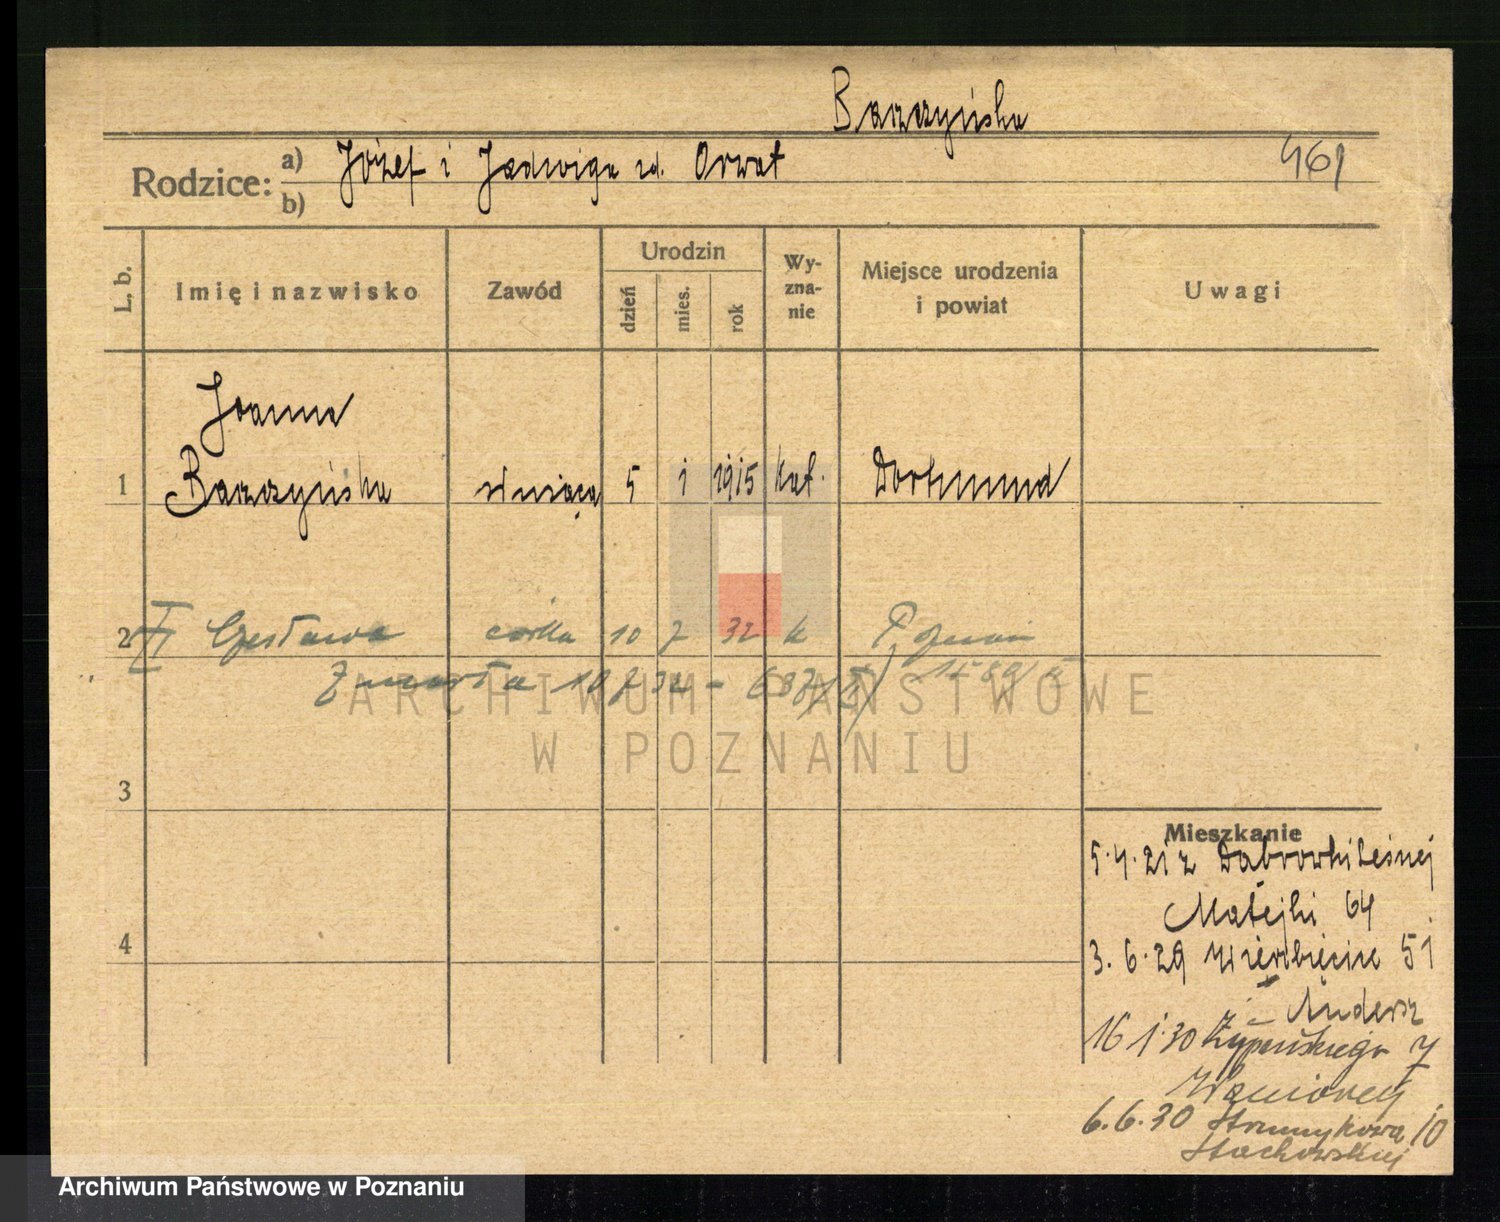 Barczyńska
Rodzice: a) Józef i Jadwiga zd. Orwat
b)
461
L. b.
Imię i nazwisko
Zawód
Urodzin
dzień
mies.
rok
Wy-
zna-
nie
Miejsce urodzenia
i powiat
Uwagi
Joanna
1 Barczyńska służąca 5 1 1915 kat. Dortmund
2 II Czesława córka 10 7 32 k Poznań
Zmarła 10 7 32 - 687/II 1589/II
ARCHIWUM PAŃSTWOWE
W POZNANIU
3
4
Mieszkanie
5.4.21 z Dąbrowki Leśnej
Matejki 64
3.6.29 Wierzbięcice 51
Andersz
16 1.30 Żupańskiego 7
6.6.30 Strumykowa 10
Stachowskiej
Archiwum Państwowe w Poznaniu